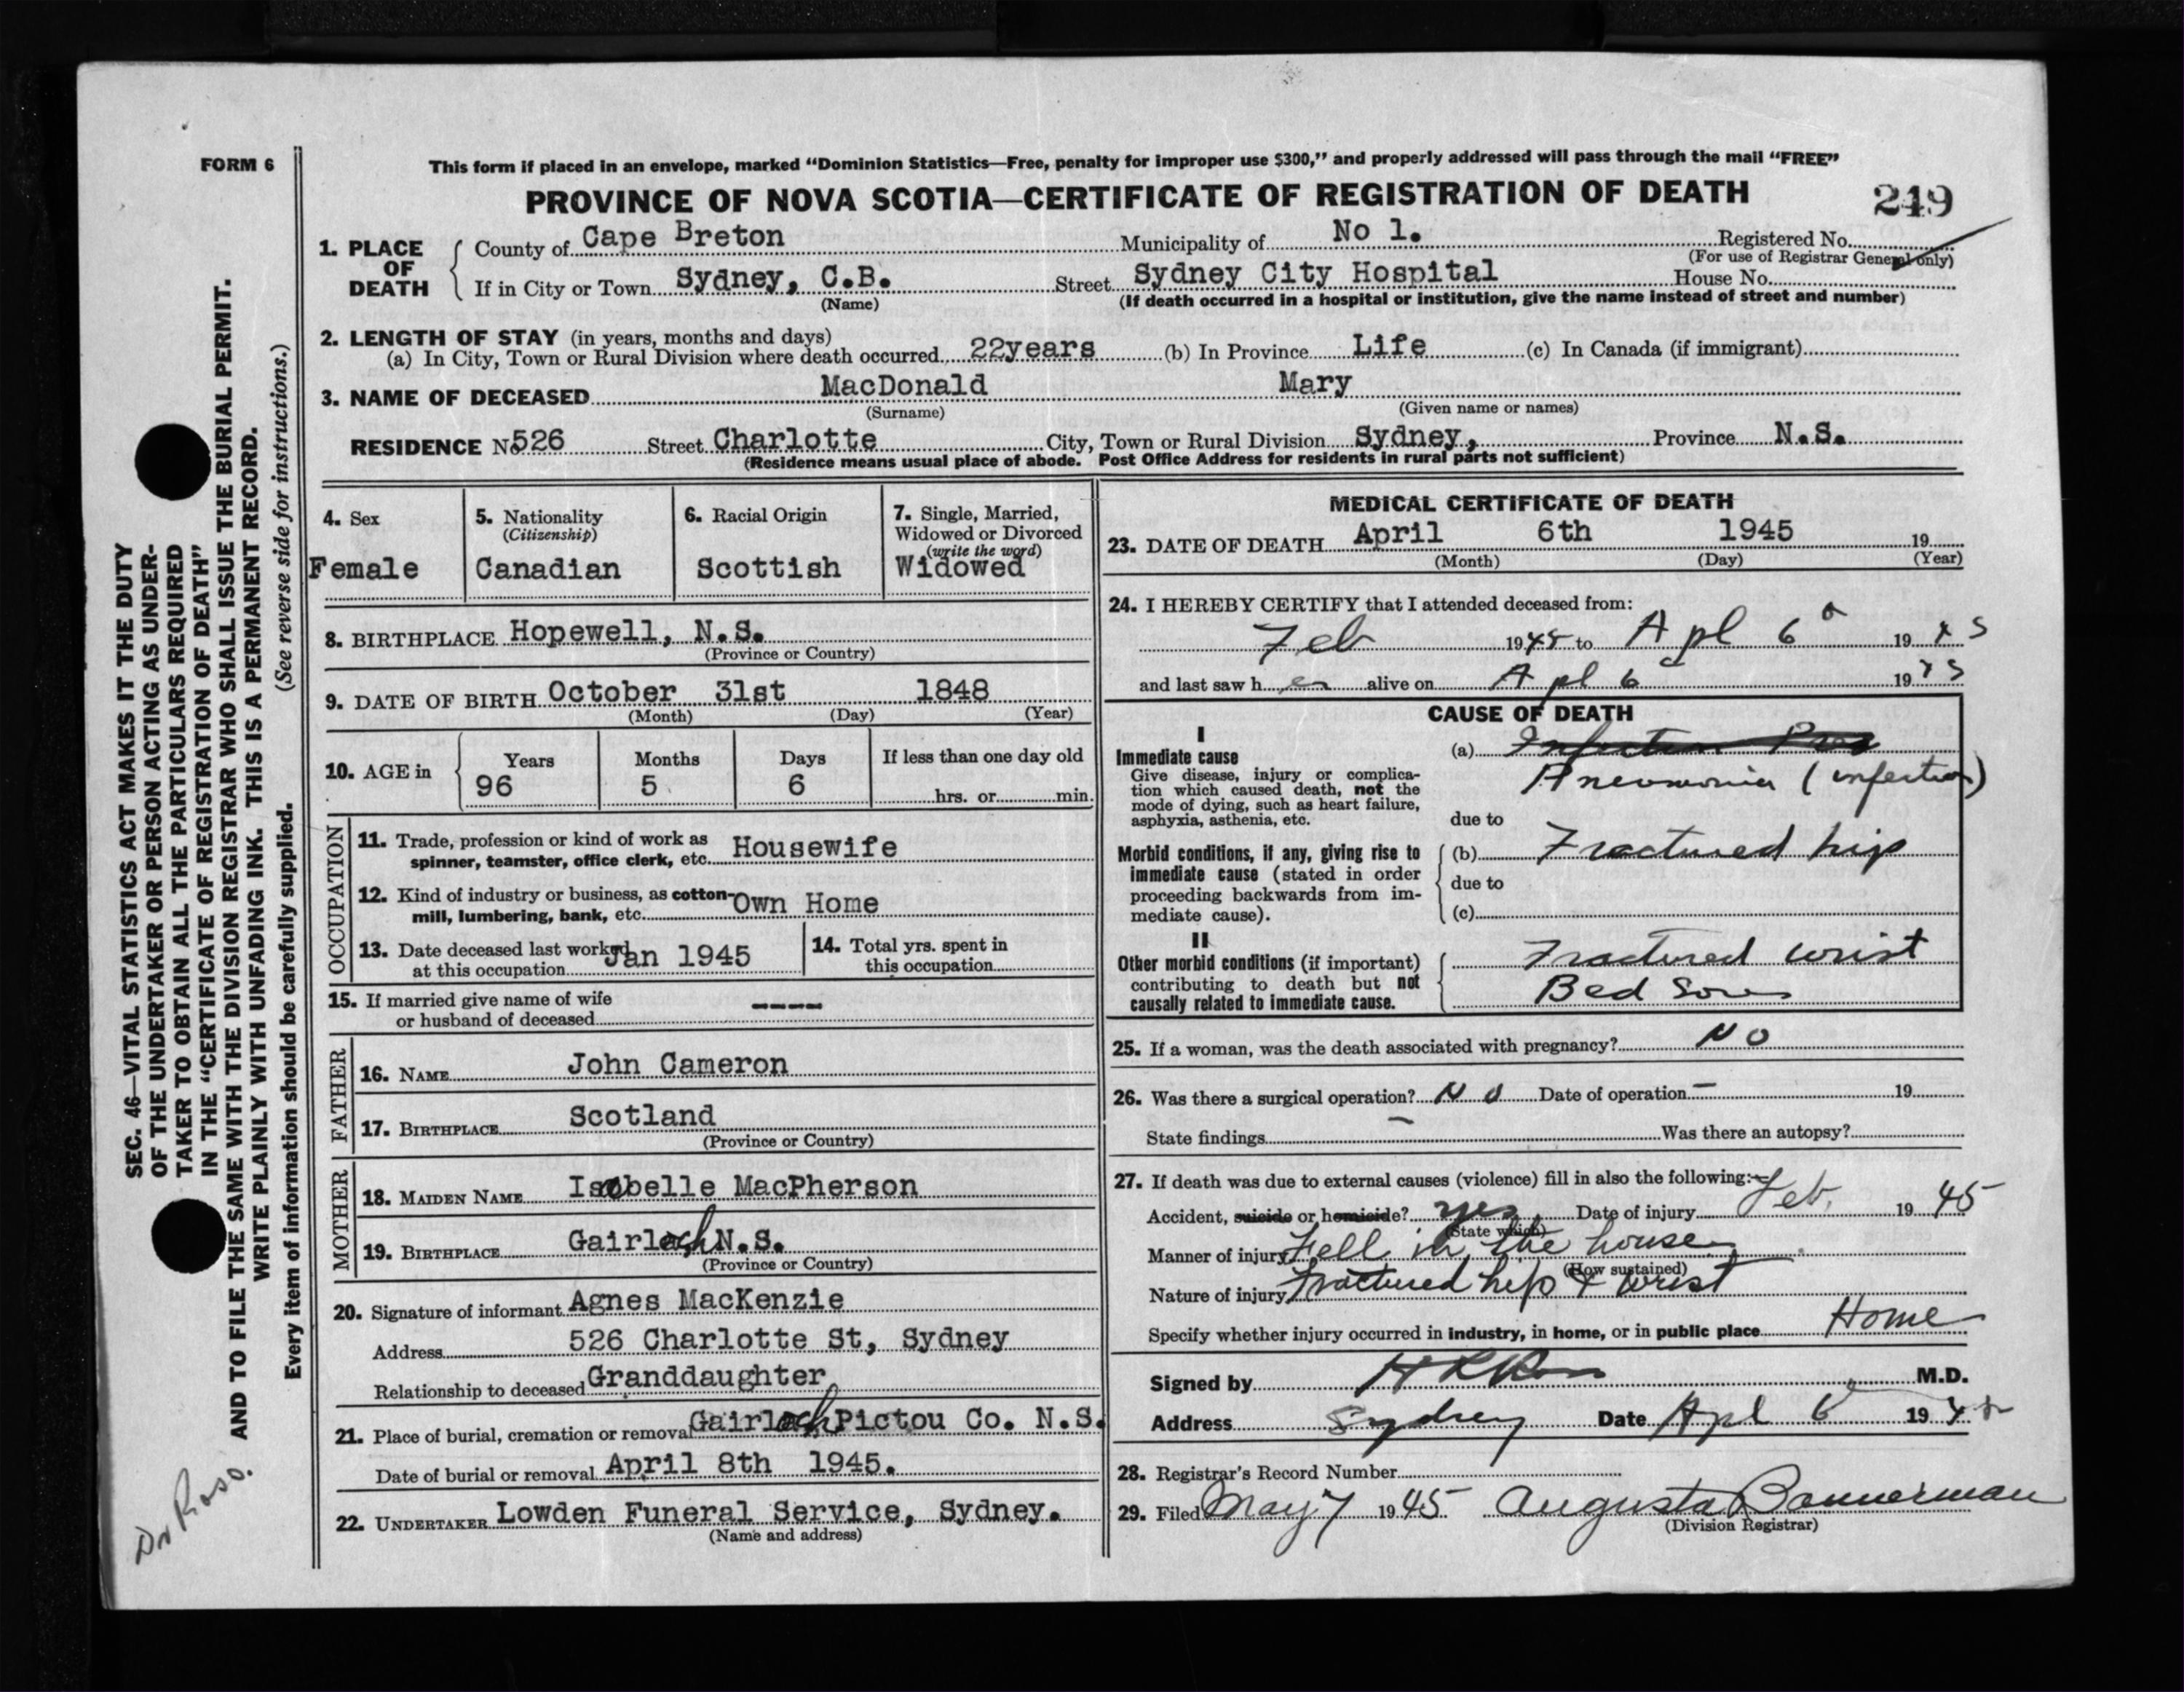 FORM 6
This form if placed in an envelope, marked “Dominion Statistics—Free, penalty for improper use $300,” and properly addressed will pass through the mail “FREE”
PROVINCE OF NOVA SCOTIA—CERTIFICATE OF REGISTRATION OF DEATH
249
1. PLACE OF DEATH County of Cape Breton Municipality of No 1. Registered No.
(For use of Registrar General only)
If in City or Town Sydney, C.B. Street Sydney City Hospital House No.
(Name) (If death occurred in a hospital or institution, give the name instead of street and number)
2. LENGTH OF STAY (in years, months and days)
(a) In City, Town or Rural Division where death occurred 22years (b) In Province Life (c) In Canada (if immigrant)
3. NAME OF DECEASED MacDonald Mary
(Surname) (Given name or names)
RESIDENCE No 526 Street Charlotte City, Town or Rural Division Sydney, Province N.S.
(Residence means usual place of abode. Post Office Address for residents in rural parts not sufficient)
4. Sex
Female
5. Nationality
(Citizenship)
Canadian
6. Racial Origin
Scottish
7. Single, Married,
Widowed or Divorced
(write the word)
Widowed
8. BIRTHPLACE Hopewell, N.S.
(Province or Country)
9. DATE OF BIRTH October 31st 1848
(Month) (Day) (Year)
10. AGE in Years Months Days If less than one day old
96 5 6 hrs. or min.
OCCUPATION
11. Trade, profession or kind of work as
spinner, teamster, office clerk, etc. Housewife
12. Kind of industry or business, as cotton-
mill, lumbering, bank, etc. Own Home
13. Date deceased last worked
at this occupation Jan 1945
14. Total yrs. spent in
this occupation
15. If married give name of wife
or husband of deceased ----
FATHER
16. NAME John Cameron
17. BIRTHPLACE Scotland
(Province or Country)
MOTHER
18. MAIDEN NAME Isabelle MacPherson
19. BIRTHPLACE Gairloch N.S.
(Province or Country)
20. Signature of informant Agnes MacKenzie
Address 526 Charlotte St, Sydney
Relationship to deceased Granddaughter
21. Place of burial, cremation or removal Gairloch Pictou Co. N.S.
Date of burial or removal April 8th 1945.
22. UNDERTAKER Lowden Funeral Service, Sydney.
(Name and address)
MEDICAL CERTIFICATE OF DEATH
23. DATE OF DEATH April 6th 1945 19
(Month) (Day) (Year)
24. I HEREBY CERTIFY that I attended deceased from:
Feb 1945 to Apl 6 1945
and last saw h er alive on Apl 6 1945
CAUSE OF DEATH
I
Immediate cause
Give disease, injury or complica-
tion which caused death, not the
mode of dying, such as heart failure,
asphyxia, asthenia, etc.
(a)
Pneumonia (infection)
due to
Morbid conditions, if any, giving rise to
immediate cause (stated in order
proceeding backwards from im-
mediate cause).
(b) Fractured hip
due to
(c)
II
Other morbid conditions (if important)
contributing to death but not
causally related to immediate cause.
Fractured wrist
Bed Sores
25. If a woman, was the death associated with pregnancy? No
26. Was there a surgical operation? No Date of operation — 19
State findings — Was there an autopsy?
27. If death was due to external causes (violence) fill in also the following:—
Accident, suicide or homicide? yes Date of injury Feb. 1945
(State which)
Manner of injury Fell in the house
(How sustained)
Nature of injury Fractured hip & wrist
Specify whether injury occurred in industry, in home, or in public place Home
Signed by M.D.
Address Sydney Date Apl 6 1945
28. Registrar's Record Number
29. Filed May 7 1945 Augusta Bannerman
(Division Registrar)
SEC. 46—VITAL STATISTICS ACT MAKES IT THE DUTY
OF THE UNDERTAKER OR PERSON ACTING AS UNDER-
TAKER TO OBTAIN ALL THE PARTICULARS REQUIRED
IN THE “CERTIFICATE OF REGISTRATION OF DEATH”
AND TO FILE THE SAME WITH THE DIVISION REGISTRAR WHO SHALL ISSUE THE BURIAL PERMIT.
WRITE PLAINLY WITH UNFADING INK. THIS IS A PERMANENT RECORD.
(See reverse side for instructions.)
Every item of information should be carefully supplied.
Dr Ross.